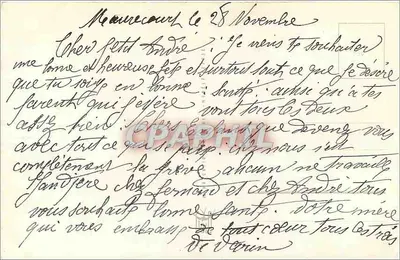 Maurecourt le 28 Novembre
Cher petit André : Je viens te souhaiter
une bonne et heureuse fete et surtout tout ce que je désire
que tu sois en bonne santé ainsi qu'a tes
parents qui j'espère vont tous les deux
assez bien Cher que devenez vous
avec tout ce qui chez nous s'est
complétement la grève aucun ne travaille
chez Fernand et chez André tous
vous souhaite bonne santé. Votre mère
qui vous embrasse de tout coeur tous les trois
CPARAMA